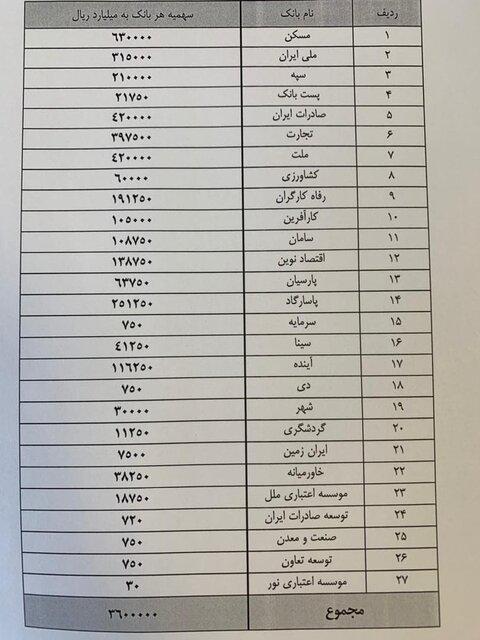 ردیف نام بانک سهمیه هر بانک به میلیارد ریال
۱ مسکن ۶۳۰۰۰۰
۲ ملی ایران ۳۱۵۰۰۰
۳ سپه ۲۱۰۰۰۰
۴ پست بانک ۲۱۷۵۰
۵ صادرات ایران ۴۲۰۰۰۰
۶ تجارت ۳۹۷۵۰۰
۷ ملت ۴۲۰۰۰۰
۸ کشاورزی ۶۰۰۰۰
۹ رفاه کارگران ۱۹۱۲۵۰
۱۰ کارآفرین ۱۰۵۰۰۰
۱۱ سامان ۱۰۸۷۵۰
۱۲ اقتصاد نوین ۱۳۸۷۵۰
۱۳ پارسیان ۶۳۷۵۰
۱۴ پاسارگاد ۲۵۱۲۵۰
۱۵ سرمایه ۷۵۰
۱۶ سینا ۴۱۲۵۰
۱۷ آینده ۱۱۶۲۵۰
۱۸ دی ۷۵۰
۱۹ شهر ۳۰۰۰۰
۲۰ گردشگری ۱۱۲۵۰
۲۱ ایران زمین ۷۵۰۰
۲۲ خاورمیانه ۳۸۲۵۰
۲۳ موسسه اعتباری ملل ۱۸۷۵۰
۲۴ توسعه صادرات ایران ۷۲۰
۲۵ صنعت و معدن ۷۵۰
۲۶ توسعه تعاون ۷۵۰
۲۷ موسسه اعتباری نور ۳۰
مجموع ۳۶۰۰۰۰۰